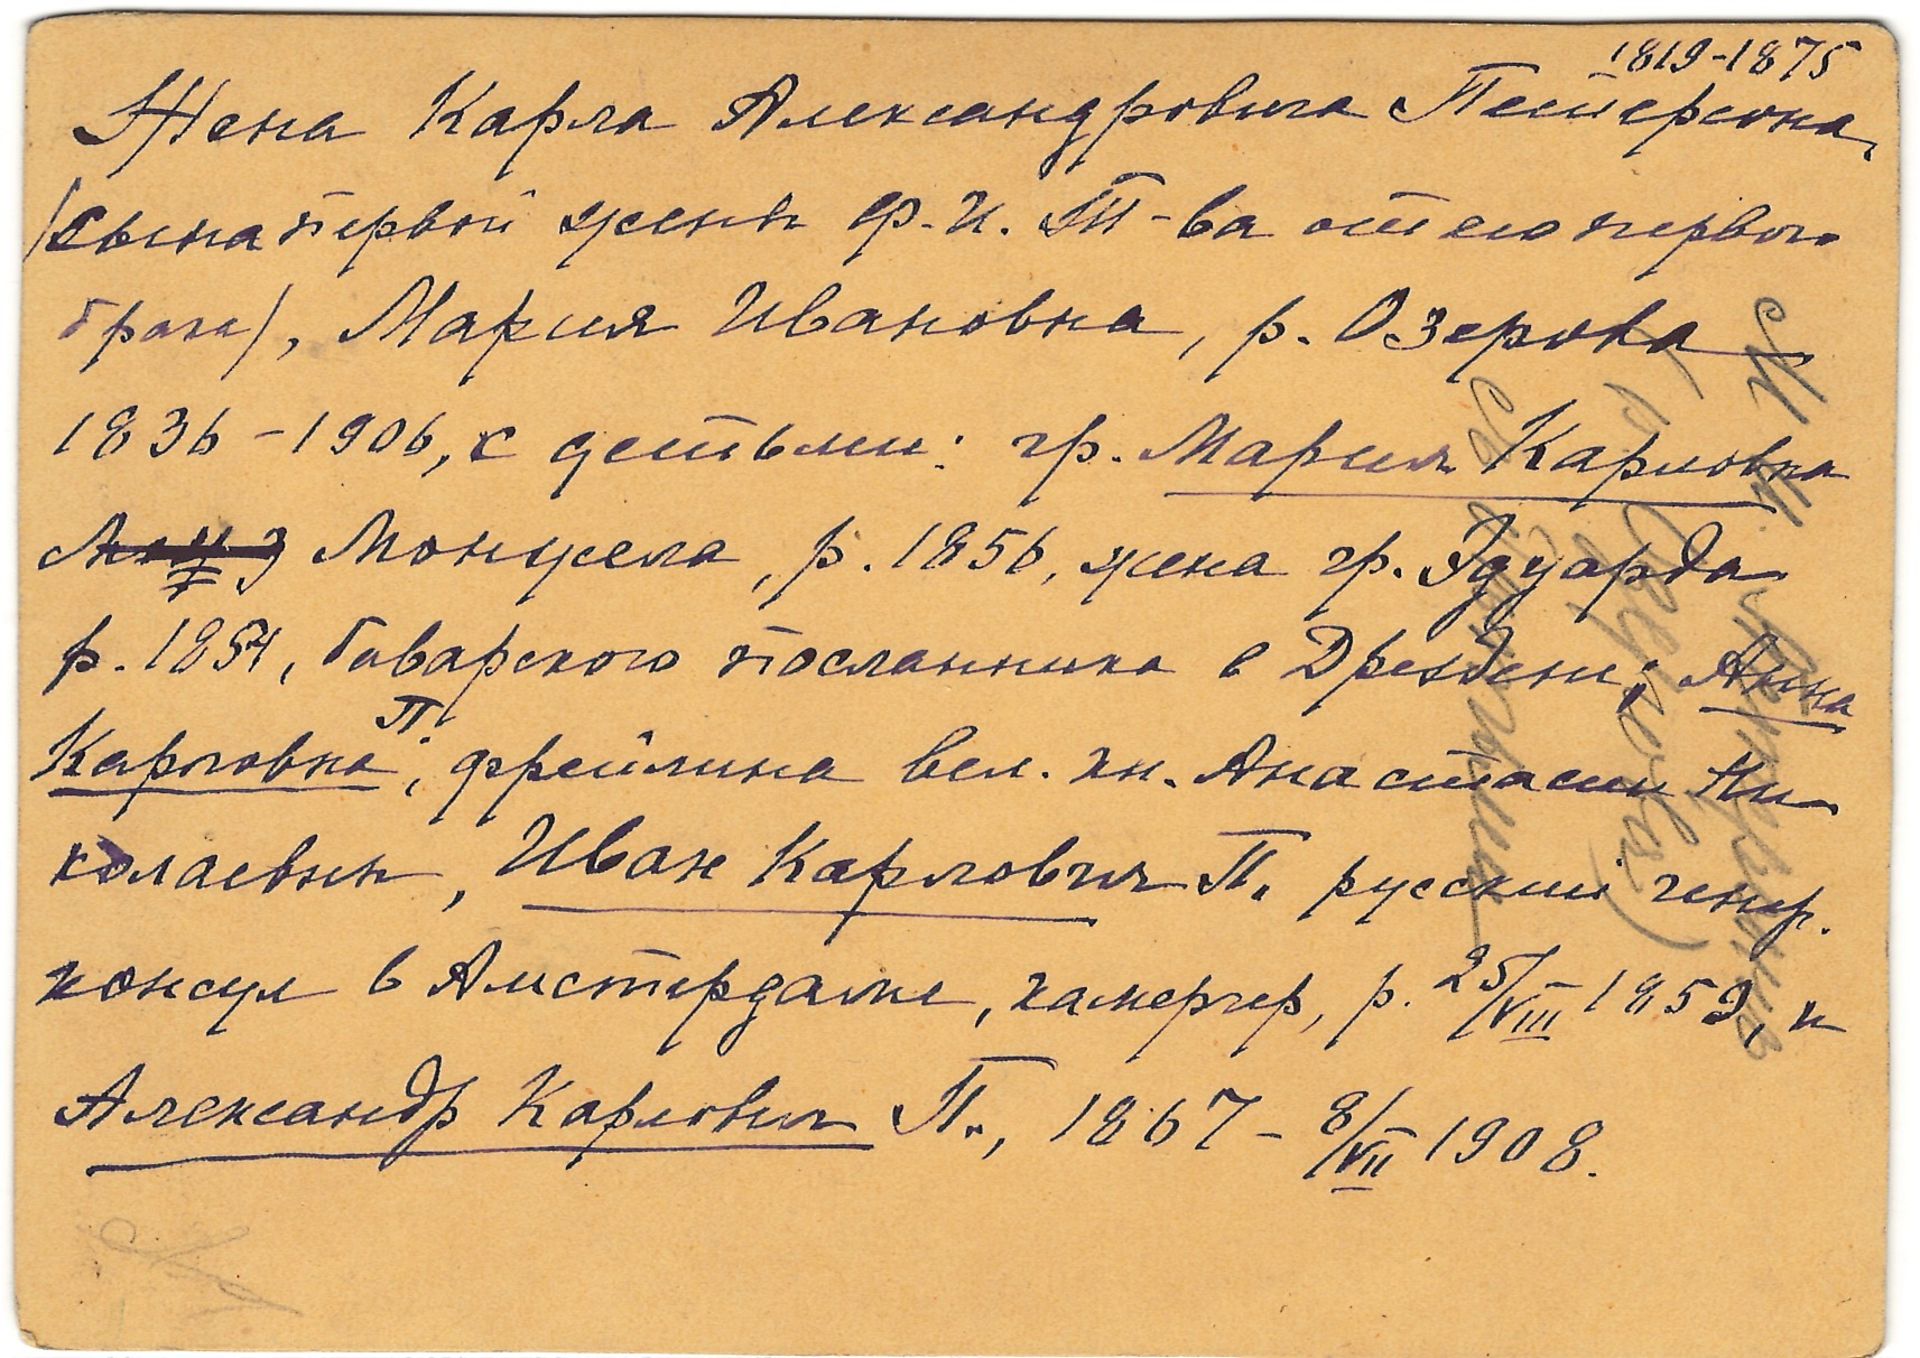 1819-1875
Жена Карла Александровича Петерсона,
/сына первой жены Ф.И. Т-ва от ею первого
брака/, Мария Ивановна, р. Озерова
1836-1906, с детьми: гр. Мария Карловна
Монжела, р. 1856, жена гр. Эдуарда
р. 1854, баварского посланника в Дрездене; Анна
Карловна П., фрейлина вел. кн. Анастасии Ни-
колаевны, Иван Карлович П. русский генер.
консул в Амстердаме, камергер, р. 25/VIII 1859, и
Александр Карлович П., 1867 - 8/VII 1908.
М. И. Петерсон
(р. Озерова)
с детьми